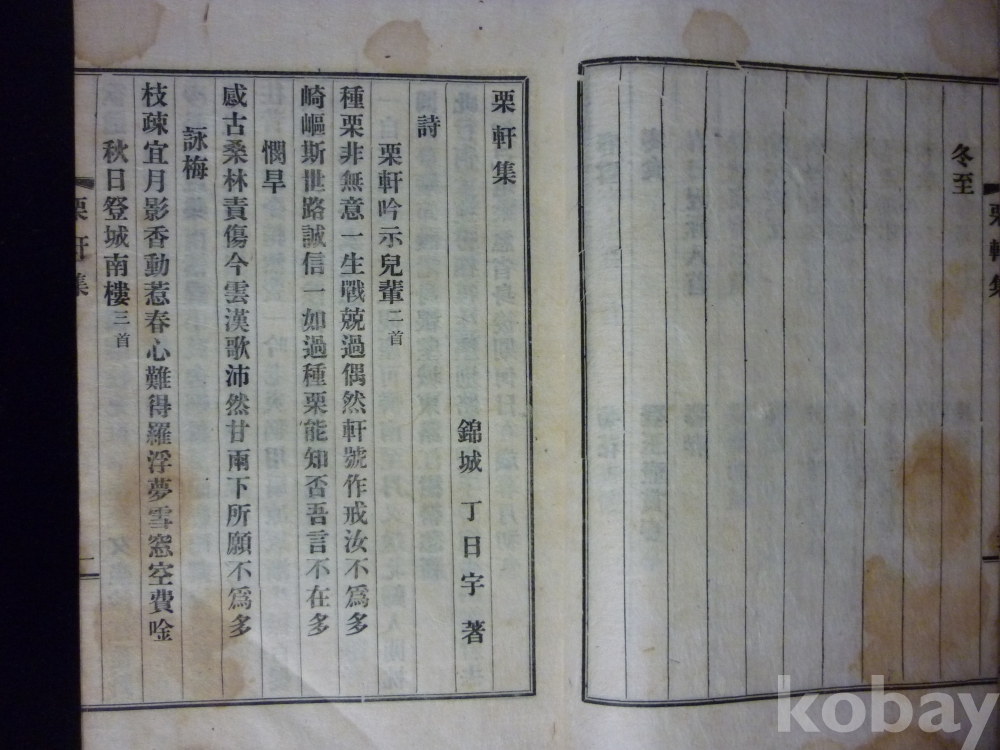 冬至
栗軒集
栗軒集
錦城 丁日宇 著
詩
栗軒吟示兒輩二首
種栗非無意一生戰兢過偶然軒號作戒汝不爲多
崎嶇斯世路誠信一如過種栗能知否吾言不在多
憫旱
感古桑林責傷今雲漢歌沛然甘雨下所願不爲多
詠梅
枝疎宜月影香動惹春心難得羅浮夢雪窓空費唫
秋日登城南樓三首
栗軒集
一
kobay